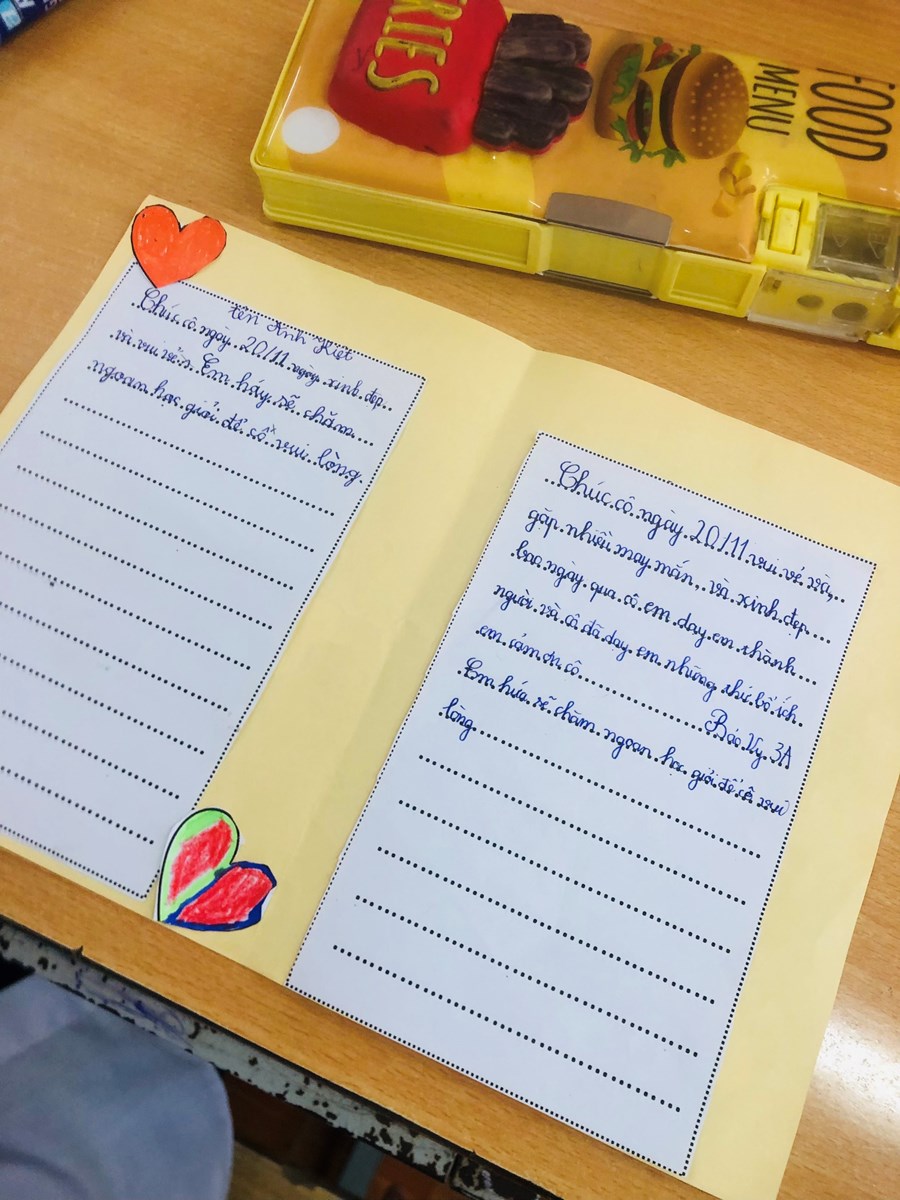 FRIES
FOOD
MENU
tên Anh Kiệt
Chúc cô ngày 20/11 ngày xinh đẹp
và vui vẻ. Em hãy sẽ chăm
ngoan học giỏi để cô vui lòng.
Chúc cô ngày 20/11 vui vẻ và
gặp nhiều may mắn, và xinh đẹp
bao ngày qua cô em dạy em thành
người và cô đã dạy em những thứ bổ ích.
em cám ơn cô Bảo Vy 3A
Em hứa sẽ chăm ngoan học giỏi để cô vui
lòng